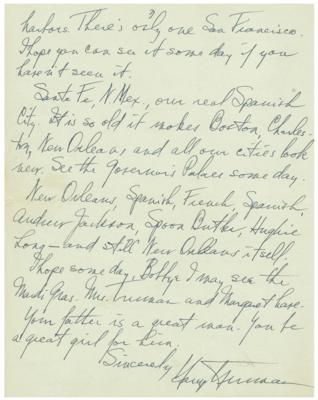 3)
harbors. There's only one San Francisco.
I hope you can see it some day if you
haven't seen it.
Santa Fe, N. Mex., our real Spanish
City. It is so old it makes Boston, Charles-
ton, New Orleans and all our cities look
new. See the Governor's Palace some day.
New Orleans, Spanish, French, Spanish,
Andrew Jackson, Spoon Butler, Hughie
Long - and still New Orleans itself.
I hope some day, Bobbye I may see the
Mardi Gras. Mrs. Truman and Margaret have.
Your father is a great man. You be
a great girl for him.
Sincerely Harry Truman